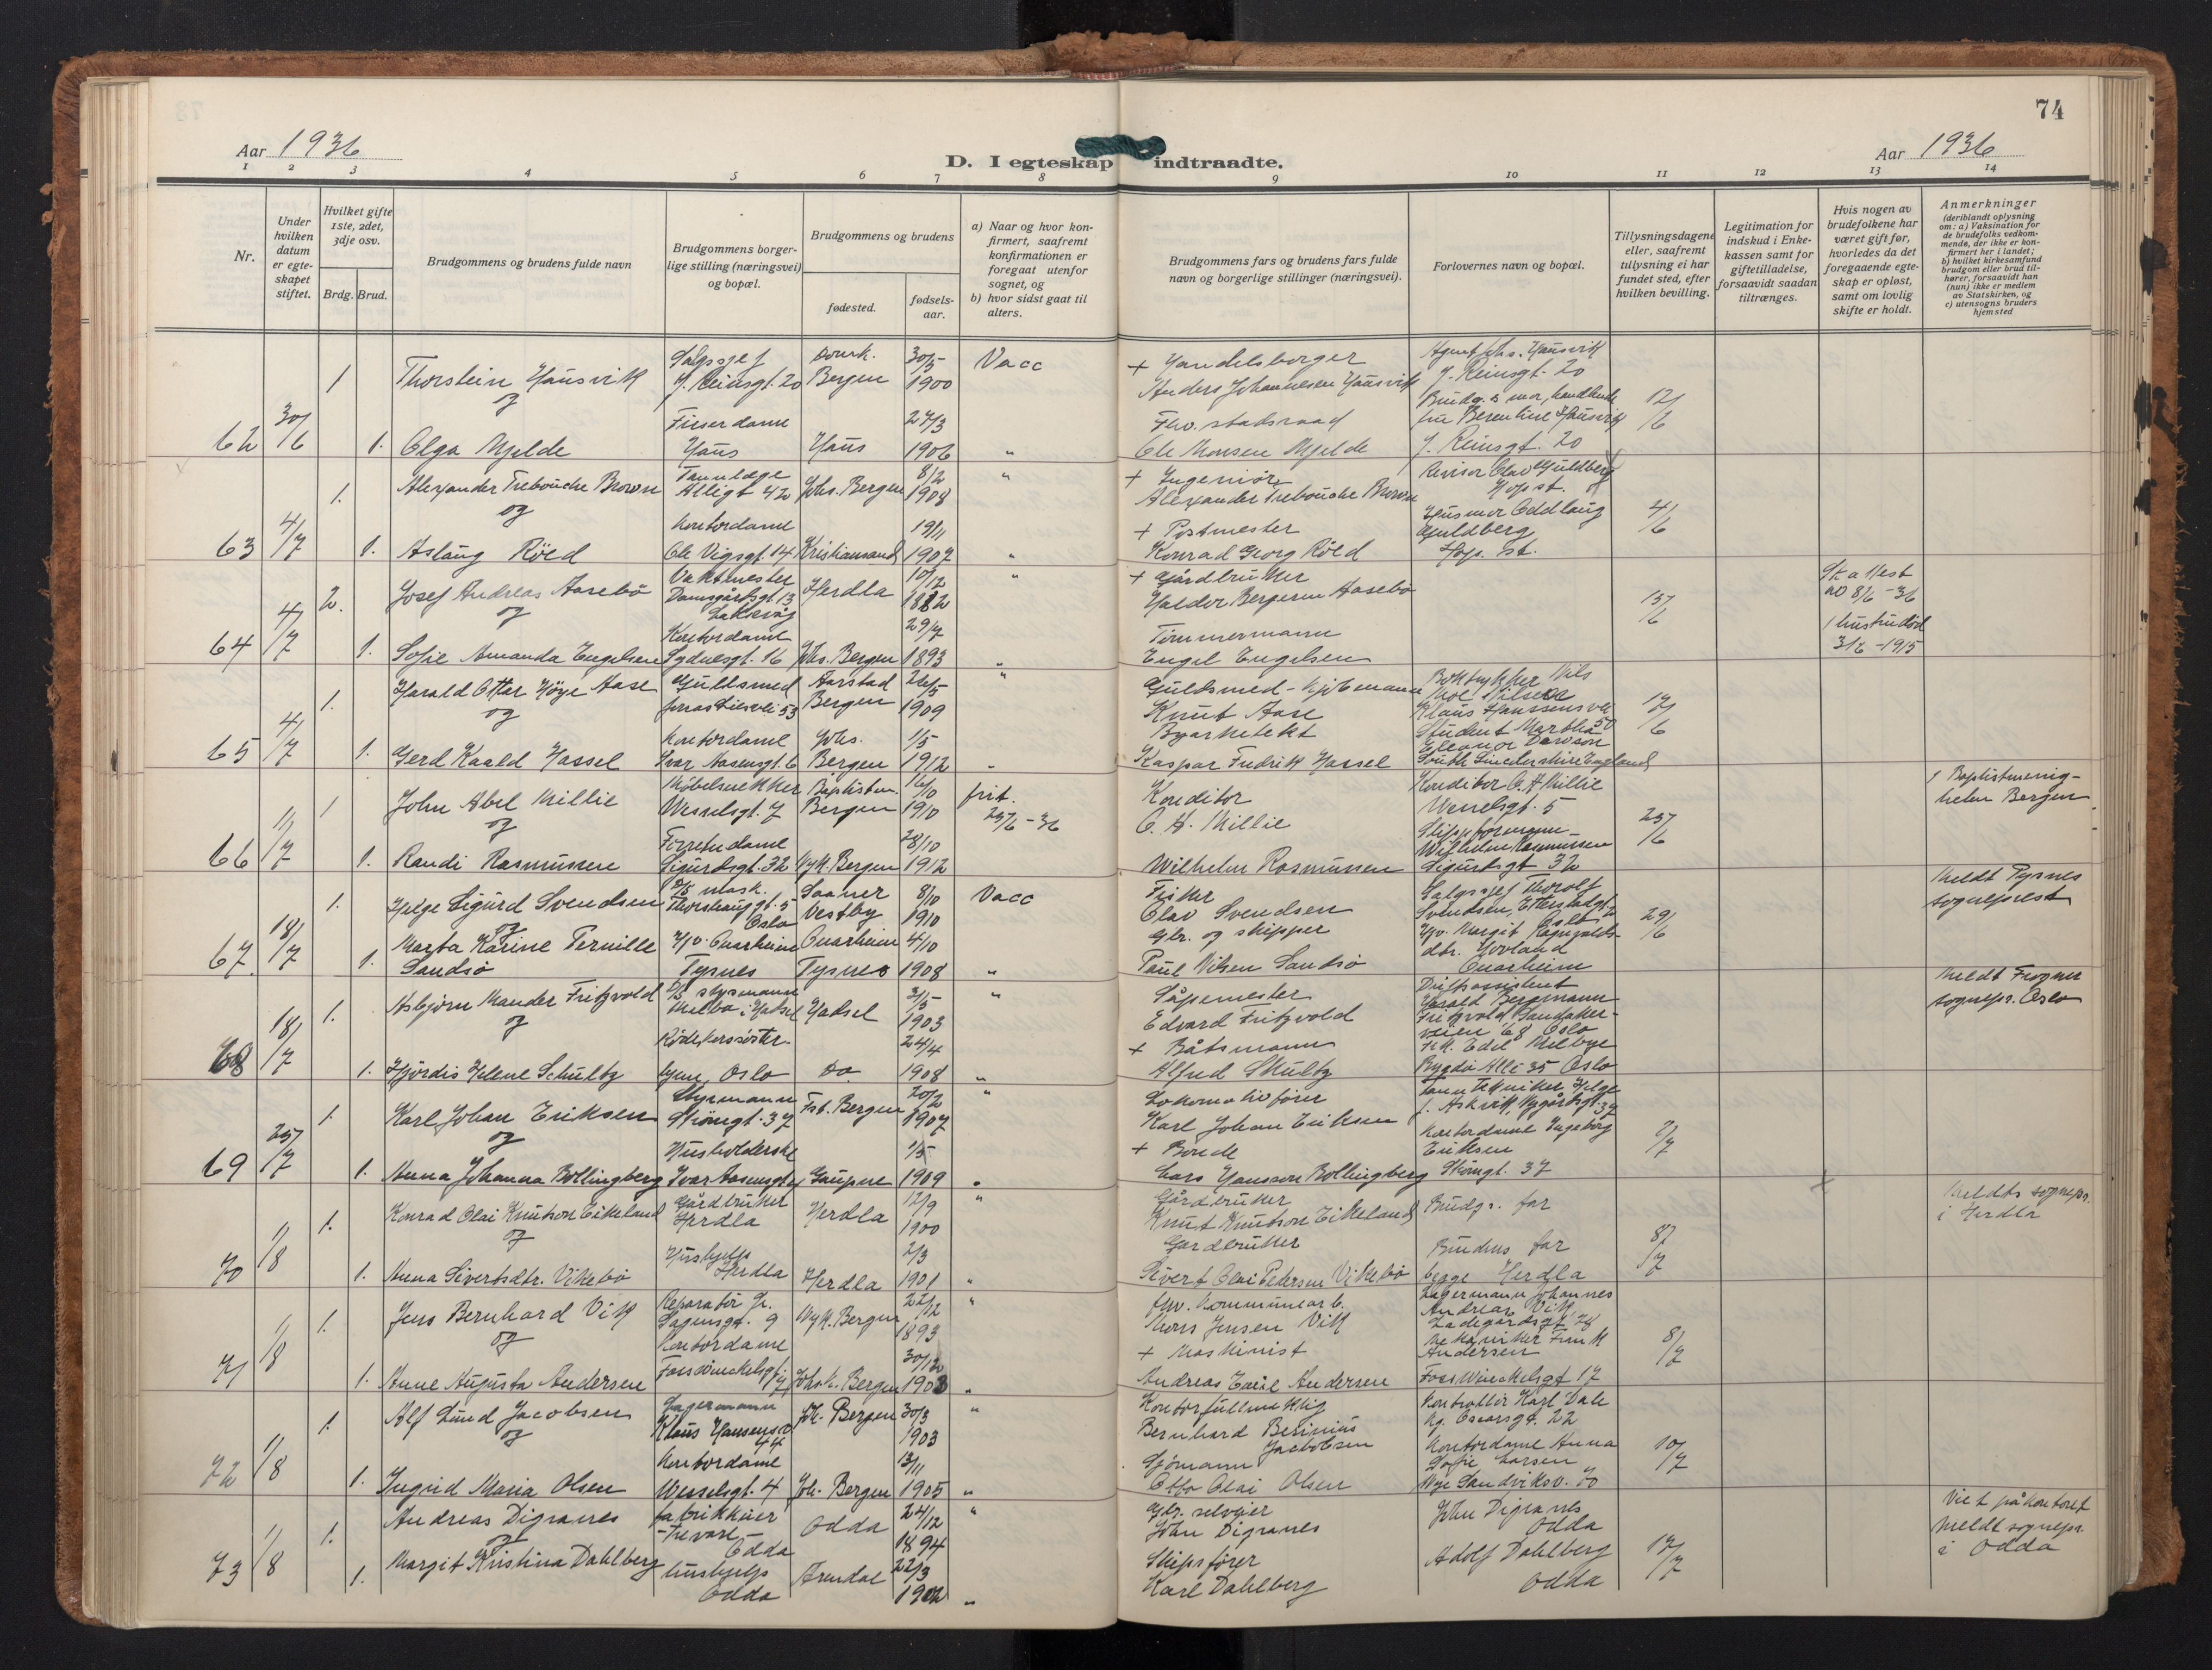 74
Aar 1936
D. I egteskap indtraadte.
Aar 1936
1 2 3 4 5 6 7 8 9 10 11 12 13 14
Nr.
Under hvilken datum er egteskapet stiftet.
Hvilket gifte 1ste, 2det, 3dje osv.
Brdg. Brud.
Brudgommens og brudens fulde navn
Brudgommens borgerlige stilling (næringsvei) og bopæl.
Brudgommens og brudens
fødested.
fødselsaar.
a) Naar og hvor konfirmert, saafremt konfirmationen er foregaat utenfor sognet, og
b) hvor sidst gaat til alters.
Brudgommens fars og brudens fars fulde navn og borgerlige stillinger (næringsvei).
Forlovernes navn og bopæl.
Tillysningsdagene eller, saafremt tillysning ei har fundet sted, efter hvilken bevilling.
Legitimation for indskud i Enkekassen samt for giftetilladelse, forsaavidt saadan tiltrænges.
Hvis nogen av brudefolkene har været gift før, hvorledes da det foregaaende egteskap er opløst, samt om lovlig skifte er holdt.
Anmerkninger
(deriblandt oplysning om: a) Vaksination for de brudefolks vedkommende, der ikke er konfirmert her i landet; b) hvilket kirkesamfund brudgom eller brud tilhører, forsaavidt han (hun) ikke er medlem av Statskirken, og c) utensogns bruders hjemsted
62 30/6
1 Thorstein Hausvik Salgssjef J. Reinsgt. 20 Domk. Bergen 30/5 1900 Vacc + Handelsborger Anders Johannesen Hausvik Agent Johs. Hausvik J. Reinsgt. 20
og
1. Olga Mjelde Friserdame Haus Haus 24/3 1906 " Fhv. stadsraad Ole Monsen Mjelde fru Berentine Hausvik J. Reinsgt. 20 12/6
63 4/7
1. Alexander Trebouche Brown Tannlæge Allégt 42 Johs. Bergen 8/2 1908 " + Ingeniør Alexander Trebouche Brown Revisor Olav Guldberg Hop st.
og
1. Aslaug Röed Kontordame Ole Vigsgt. 14 Kristiansand 19/11 1907 " + Postmester Konrad Georg Röed Husmor Oddlaug Guldberg Hop. st. 4/6
64 4/7
2. Josef Andreas Aasebö Vaktmester Damsgårdsgt. 13 Laksevåg Herdla 10/12 1882 " + Gårdbruker Haldor Bergersen Aasebö 15/6
og
1. Sofie Amanda Engelsen Kontordame Sydnesgt. 16 Johs. Bergen 29/7 1893 " Tömmermann Engel Engelsen
Ska attest av 8/6 -36
1 hustru död 31/2 -1915
65 4/7
1. Harald Ottar Höye Aase Gullsmed Aarstad Bergen 26/5 1909 " Guldsmed - kjöbmann Knut Aase Boktrykker Nils Nilsen Klaus Hanssensvei 50
og
1. Gerd Kaald Hassel Kontordame Ivar Aasensgt. 6 Johs. Bergen 1/5 1912 " Byarkitekt Kaspar Fredrik Hassel Student Martha Eleanor Dawson England 17/6
66 11/7
1 John Abel Millie Möbelsnekker Wesselsgt. 7 Baptistm. Bergen 16/10 1910 frit. 25/6 -36 Konditor O. H. Millie Konditor O. H. Millie Wesselsgt. 5
og
1. Randi Rasmussen Forretn.dame Sigurdsgt. 32 Nyk. Bergen 28/10 1912 Wilhelm Rasmussen Wilhelm Rasmussen Sigurdsgt 32 25/6
1 Baptistmenigheten Bergen
67 18/7
1. Helge Sigurd Svendsen mask. Oslo Vestby 8/10 1910 Vacc Fisker Olav Svendsen Salgssjef Thorolf Svendsen, Oslo
og
1. Marta Karine Pernille Sandsö Hjv. Onarheim Tysnes Onarheim Tysnes 4/10 1908 " Gbr. og skipper Paul Nilsen Sandsö Hjv. Margit Ragnvaldsdtr. Hovland Onarheim 29/6
Meldt Tysnes sogneprest
68 18/7
1. Asbjörn Mander Fritzvold styrmann Melbo i Hadsel Hadsel 3/5 1903 " Såpemester Edvard Fritzvold Driftsassistent Harald Bergmann Fritzvold Sandakerveien 68 Oslo
og
1. Hjördis Helene Schultz Rödekorssöster Oslo Do. 24/4 1908 " + Båtsmann Alfred Skultz Frk. Edel Melbye Bygdö Allé 35 Oslo
Meldt Frogner sognepr. Oslo
69 25/7
1. Karl Johan Eriksen Styrmann Strömgt. 37 Fst. Bergen 20/2 1907 " Lokomotivförer Karl Johan Eriksen Tanntekniker Helge J. Askvik, Nygårdsgt. 37
og
1. Anna Johanna Bollingberg Husholderske Ivar Aasensgt 6 Gaupne 1/5 1909 " + Bonde Lars Hansson Bollingberg Kontordame Ingeborg Eriksen Strömgt. 37 2/7
70 1/8
1. Konrad Olai Knutson Eikeland Gårdbruker Herdla Herdla 12/9 1900 " Gårdbruker Knut Knutson Eikeland Brudgs. far
og
1. Anna Sivertsdtr. Vikebö Hushjelp Herdla Herdla 2/3 1901 " Gardbruker Sivert Olai Petersen Vikebö Brudens far begge Herdla 8/7
Meldt sognepr. i Herdla
71 1/8
1. Jens Bernhard Vik Reparatör Sagensgt. 9 Nyk. Bergen 22/12 1893 " fhv. Kommunearb. Mons Jensen Vik Lagermann Johannes Andreas Vik Ladegårdsgt 78
og
1. Anne Augusta Andersen Kontordame Fosswinckelsgt 17 Johsk. Bergen 30/12 1903 " + Maskinist Andreas Emil Andersen Mekaniker Andersen Fosswinckelsgt 17 8/7
72 1/8
1. Alf Lund Jacobsen Lagermann Klaus Hansensv. 44 Joh. Bergen 30/3 1903 " Kontorfullmektig Bernhard Jacobsen Kontrollör Karl Dale Kg. Oscarsgt. 22
og
1. Ingrid Maria Olsen Kontordame Wesselsgt. 4 Joh. Bergen 13/11 1905 " Sjömann Otto Olai Olsen Kontordame Anna Sofie Larsen Nye Sandviksv. 70 10/7
73 1/8
1. Andreas Digranes fabrikkeier -trevare- Odda Odda 24/12 1894 " Gbr. selveier John Digranes John Digranes Odda
og
1. Margit Kristina Dahlberg hushjelp Odda Arendal 22/3 1902 " Skipsförer Karl Dahlberg Adolf Dahlberg Odda 17/7
Viet på kontoret meldt sognepr. i Odda